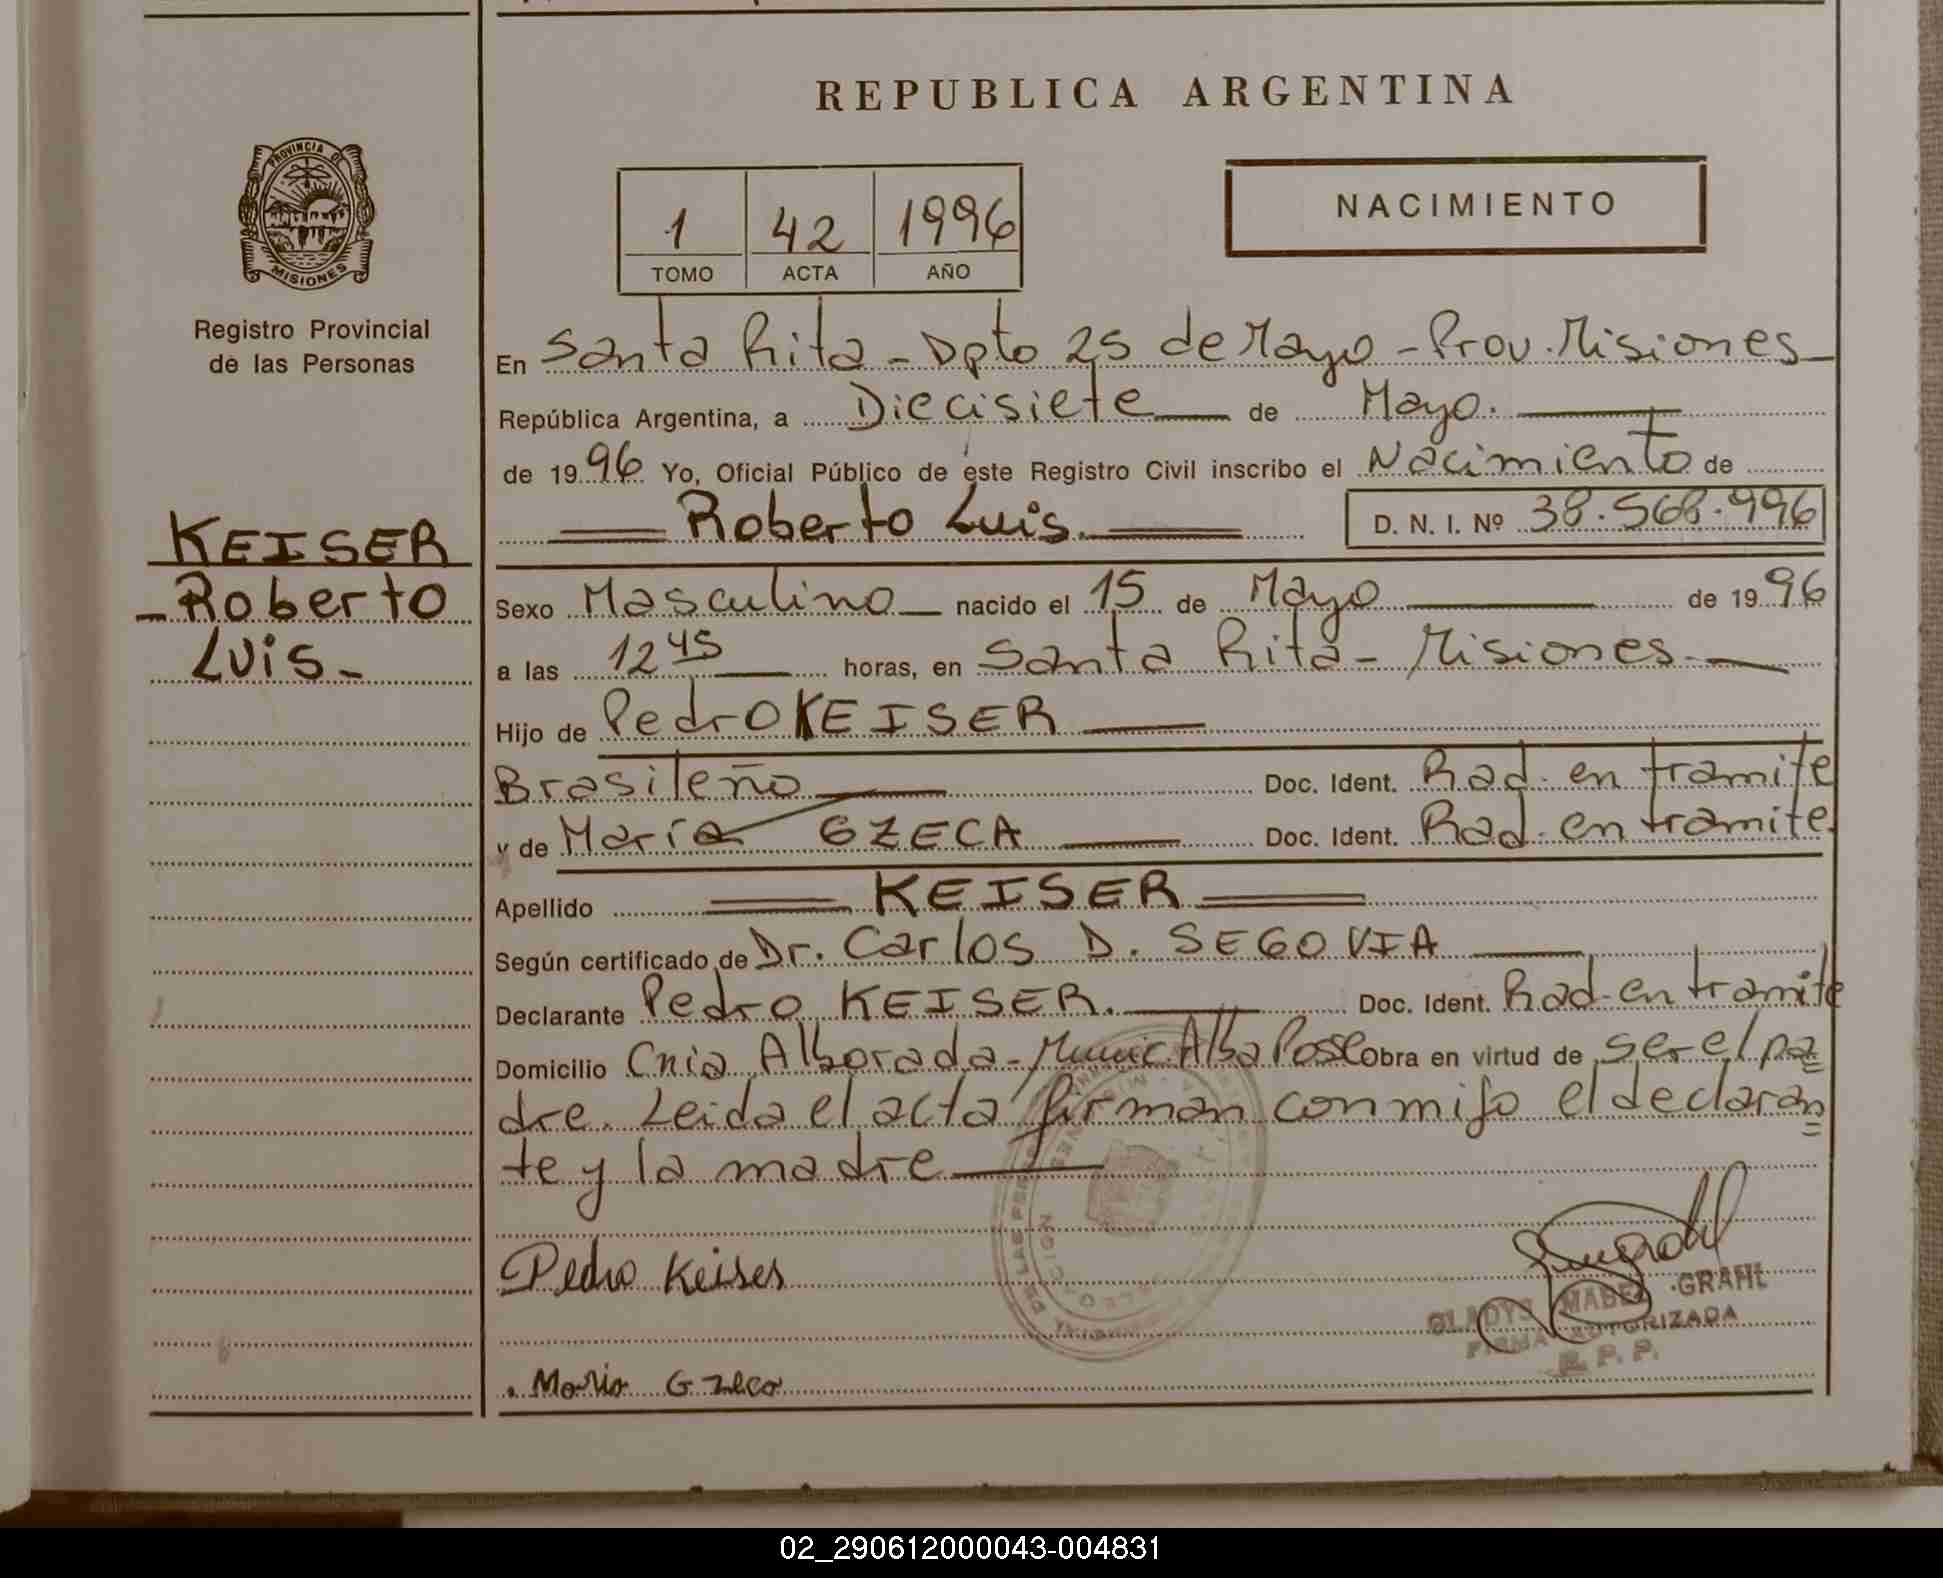 REPUBLICA ARGENTINA
PROVINCIA DE
MISIONES
Registro Provincial
de las Personas
1 42 1996
TOMO ACTA AÑO
NACIMIENTO
En Santa Rita - Dpto 25 de Mayo - Prov. Misiones
República Argentina, a Diecisiete de Mayo.
de 1996 Yo, Oficial Público de este Registro Civil inscribo el Nacimiento de
Roberto Luis. D. N. I. Nº 38.568.996
KEISER
Roberto
Luis
Sexo Masculino nacido el 15 de Mayo de 1996
a las 12 45 horas, en Santa Rita - Misiones
Hijo de Pedro KEISER
Brasileño Doc. Ident. Rad. en tramite
y de María GZECA Doc. Ident. Rad. en tramite.
Apellido KEISER
Según certificado de Dr. Carlos D. SEGOVIA
Declarante Pedro KEISER. Doc. Ident. Rad. en tramite
Domicilio Cnia Alborada - Munic. Alba Posse Obra en virtud de ser el pa
dre. Leida el acta firman conmigo el declaran
te y la madre
Pedro Keiser
GLADYS MABEL GRAHL
FIRMA AUTORIZADA
R. P. P.
Maria Gzeca
02_290612000043-004831